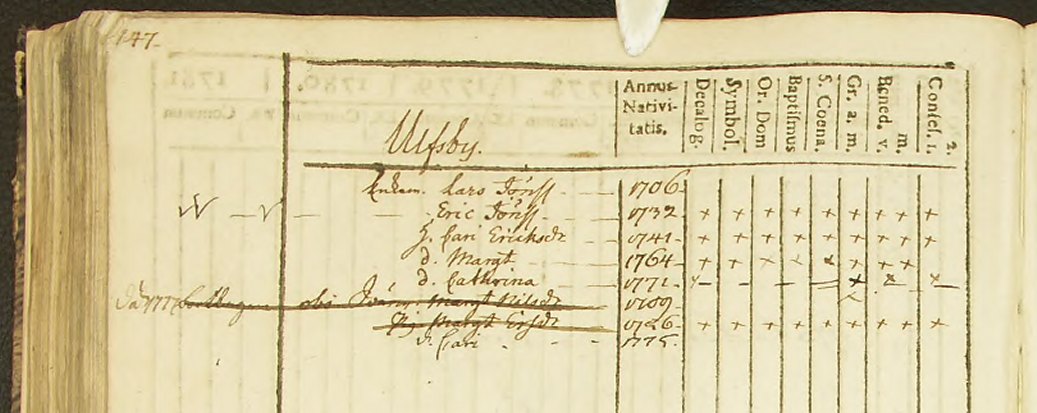 147.
Annus Nativi- tatis. Decalog. Symbol. Or. Dom Baptismus S. Coena. Gr. a. m. Bened. v. m. Confes. 1. 2.
Ulfsby.
Enkem. Lars Jönss 1706
Eric Jönss 1732 + + + + + + + + +
H. Cari Ericksdr 1741 + + + + + + + + +
d. Margt 1764 + + + + + + + +
d. Cathrina 1771
Margt Nilsdr 1709
Pig Margt Ersdr 1726 + + + + + + + + +
d. Cari 1775.